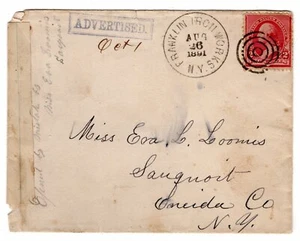 ADVERTISED.
Oct 1
FRANKLIN IRON WORKS
AUG
26
1891
N.Y.
Miss Eva L. Loomis
Sauquoit
Oneida Co
N.Y.